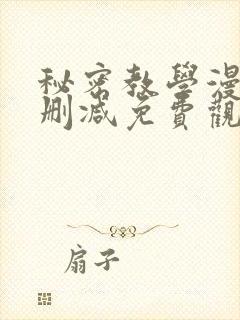 秘密教學漫
刪減免費觀
扇子